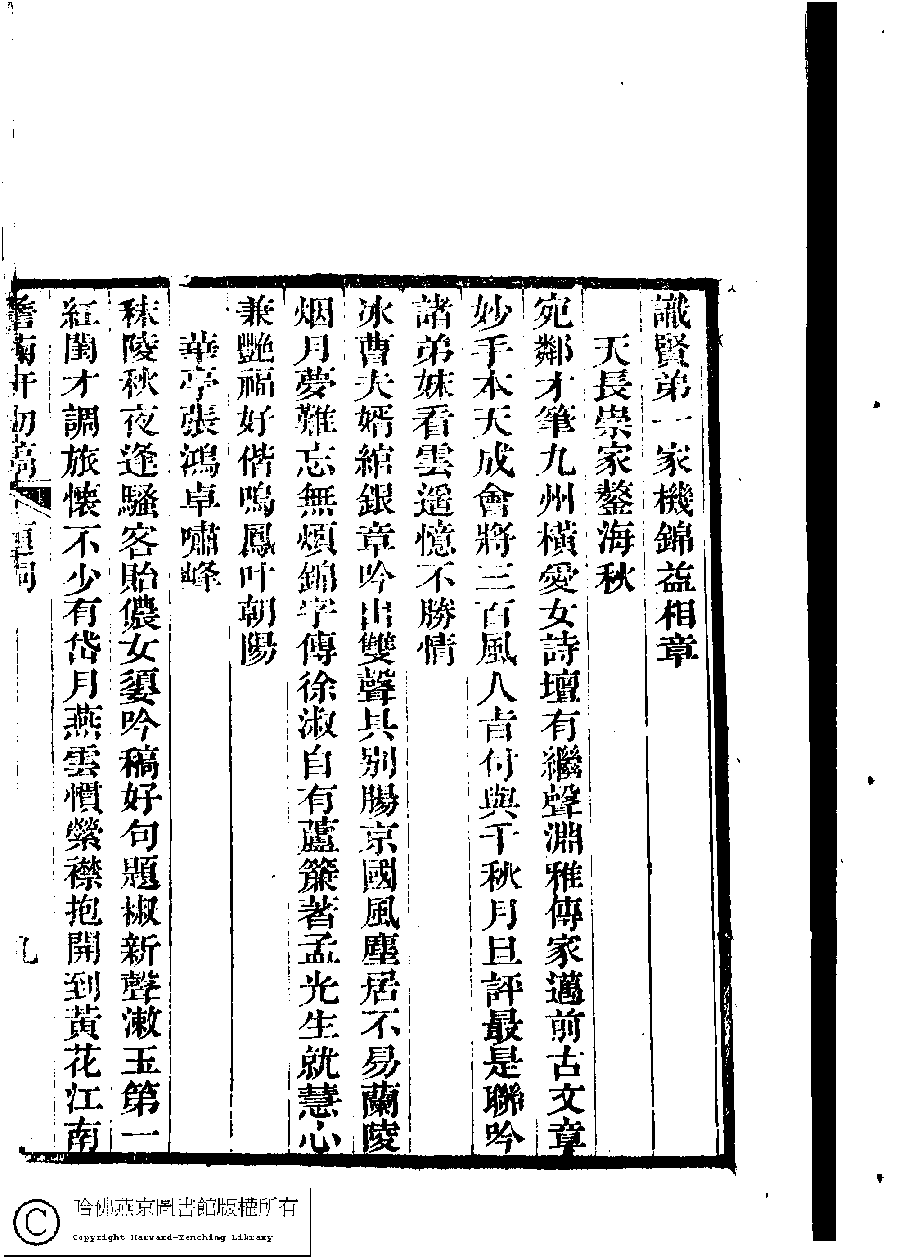 識賢弟一家機錦益相章
天長崇家鏊海秋
宛鄰才筆九州橫愛女詩壇有繼聲淵雅傳家邁前古文章
妙手本天成會將三百風人旨付與千秋月旦評最是聯吟
諸弟妹看雲遥憶不勝情
冰曹夫婿綰銀章吟出雙聲具別腸京國風塵居不易蘭陵
烟月夢難忘無煩錦字傳徐淑自有蘆簾著孟光生就慧心
兼艷福好偕鳴鳳叶朝陽
華亭張鴻卓嘯峰
秣陵秋夜逢騷客貽儂女嬃吟稿好句題椒新聲漱玉第一
紅閨才調旅懷不少有岱月燕雲慣縈襟抱開到黃花江南
澹菊軒初稿 題詞
九
哈佛燕京圖書館版權所有
Copyright Harvard-Yenching Library